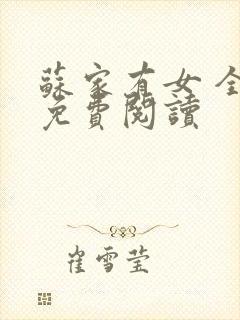 蘇家有女全
免費閱讀
崔雪莹